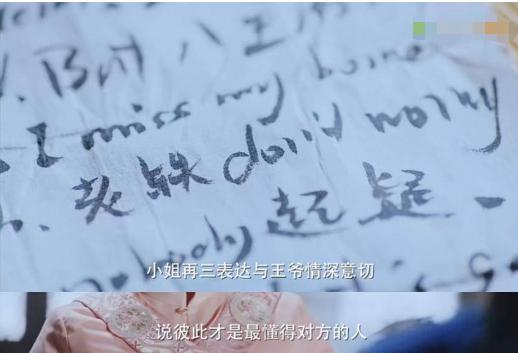 But 八王
I miss my home
don't worry
起疑
小姐再三表达与王爷情深意切
说彼此才是最懂得对方的人